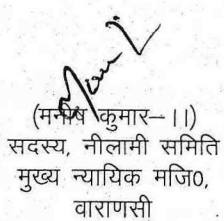 (मनीष कुमार–।।)
सदस्य, नीलामी समिति
मुख्य न्यायिक मजि0,
वाराणसी